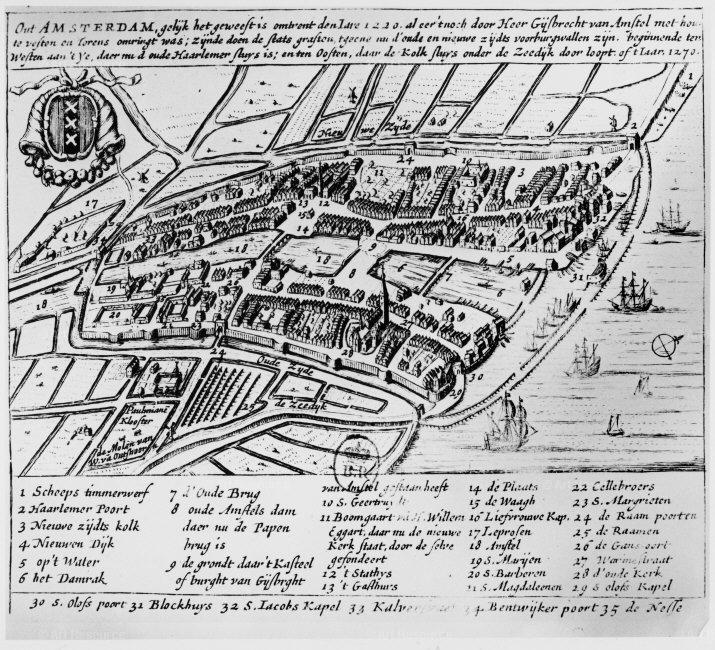 Out AMSTERDAM, gelijk het geweest is omtrent den Iare 1220. al eer't noch door Heer Gijsbrecht van Amstel met hou
te vesten en torens omringt was; zijnde doen de stats graften, tgene nu d'oude en nieuwe zijdts voorburgwallen zijn. beginnende ten
Westen aan't ye, daer nu d oude Haarlemer sluys is; en ten Oosten, daar de Kolk sluys onder de Zeedijk door loopt. of t Iaar 1270.
Nieuwe Zÿde
Oude Zyde
de Zeedyk
Paulniane
Klooster
de Molen van
1 Scheeps timmerwerf
2 Haarlemer Poort
3 Nieuwe zijdts kolk
4 Nieuwen Dijk
5 op't Water
6 het Damrak
7 d'Oude Brug
8 oude Amstels dam
daer nu de Papen
brug is
9 de grondt daar't Kasteel
of burght van Gijsbrght
van Amstel gestaan heeft
10 S. Geertruydt
11 Boomgaart va H. Willem
Eggart, daar nu de nieuwe
Kerk staat, door de selve
gefondeert
12 't Stathys
13 't Gasthurs
14 de Plaats
15 de Waagh
16 Lievrouwe Kap.
17 Leprosen
18 Amstel
19 S. Marijen
20 S. Barberen
21 S. Magdaleenen
22 Cellebroers
23 S. Margrieten
24 de Raam poorten
25 de Raamen
26 de Gans oort
27 Warmestraat
28 d'oude Kerk
29 S olofs Kapel
30 S. Olofs poort 31 Blockhuys 32 S. Iacobs Kapel 33 Kalverstraet 34 Bentwijker poort 35 de Nesse